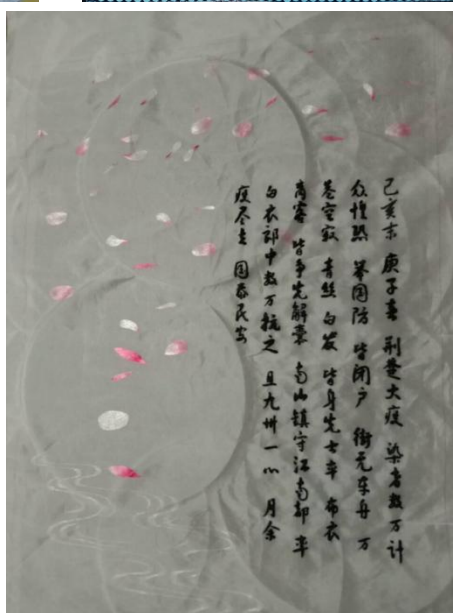 己亥末 庚子春 荆楚大疫 染者数万计
众惶恐 举国防 皆闭户 街无车舟 万
巷空寂 青丝白发 皆身先士卒 布衣
商客 皆争先解囊 南山镇守江南都 率
白衣郎中数万抗之 且九州一心 月余
疫尽去 国泰民安